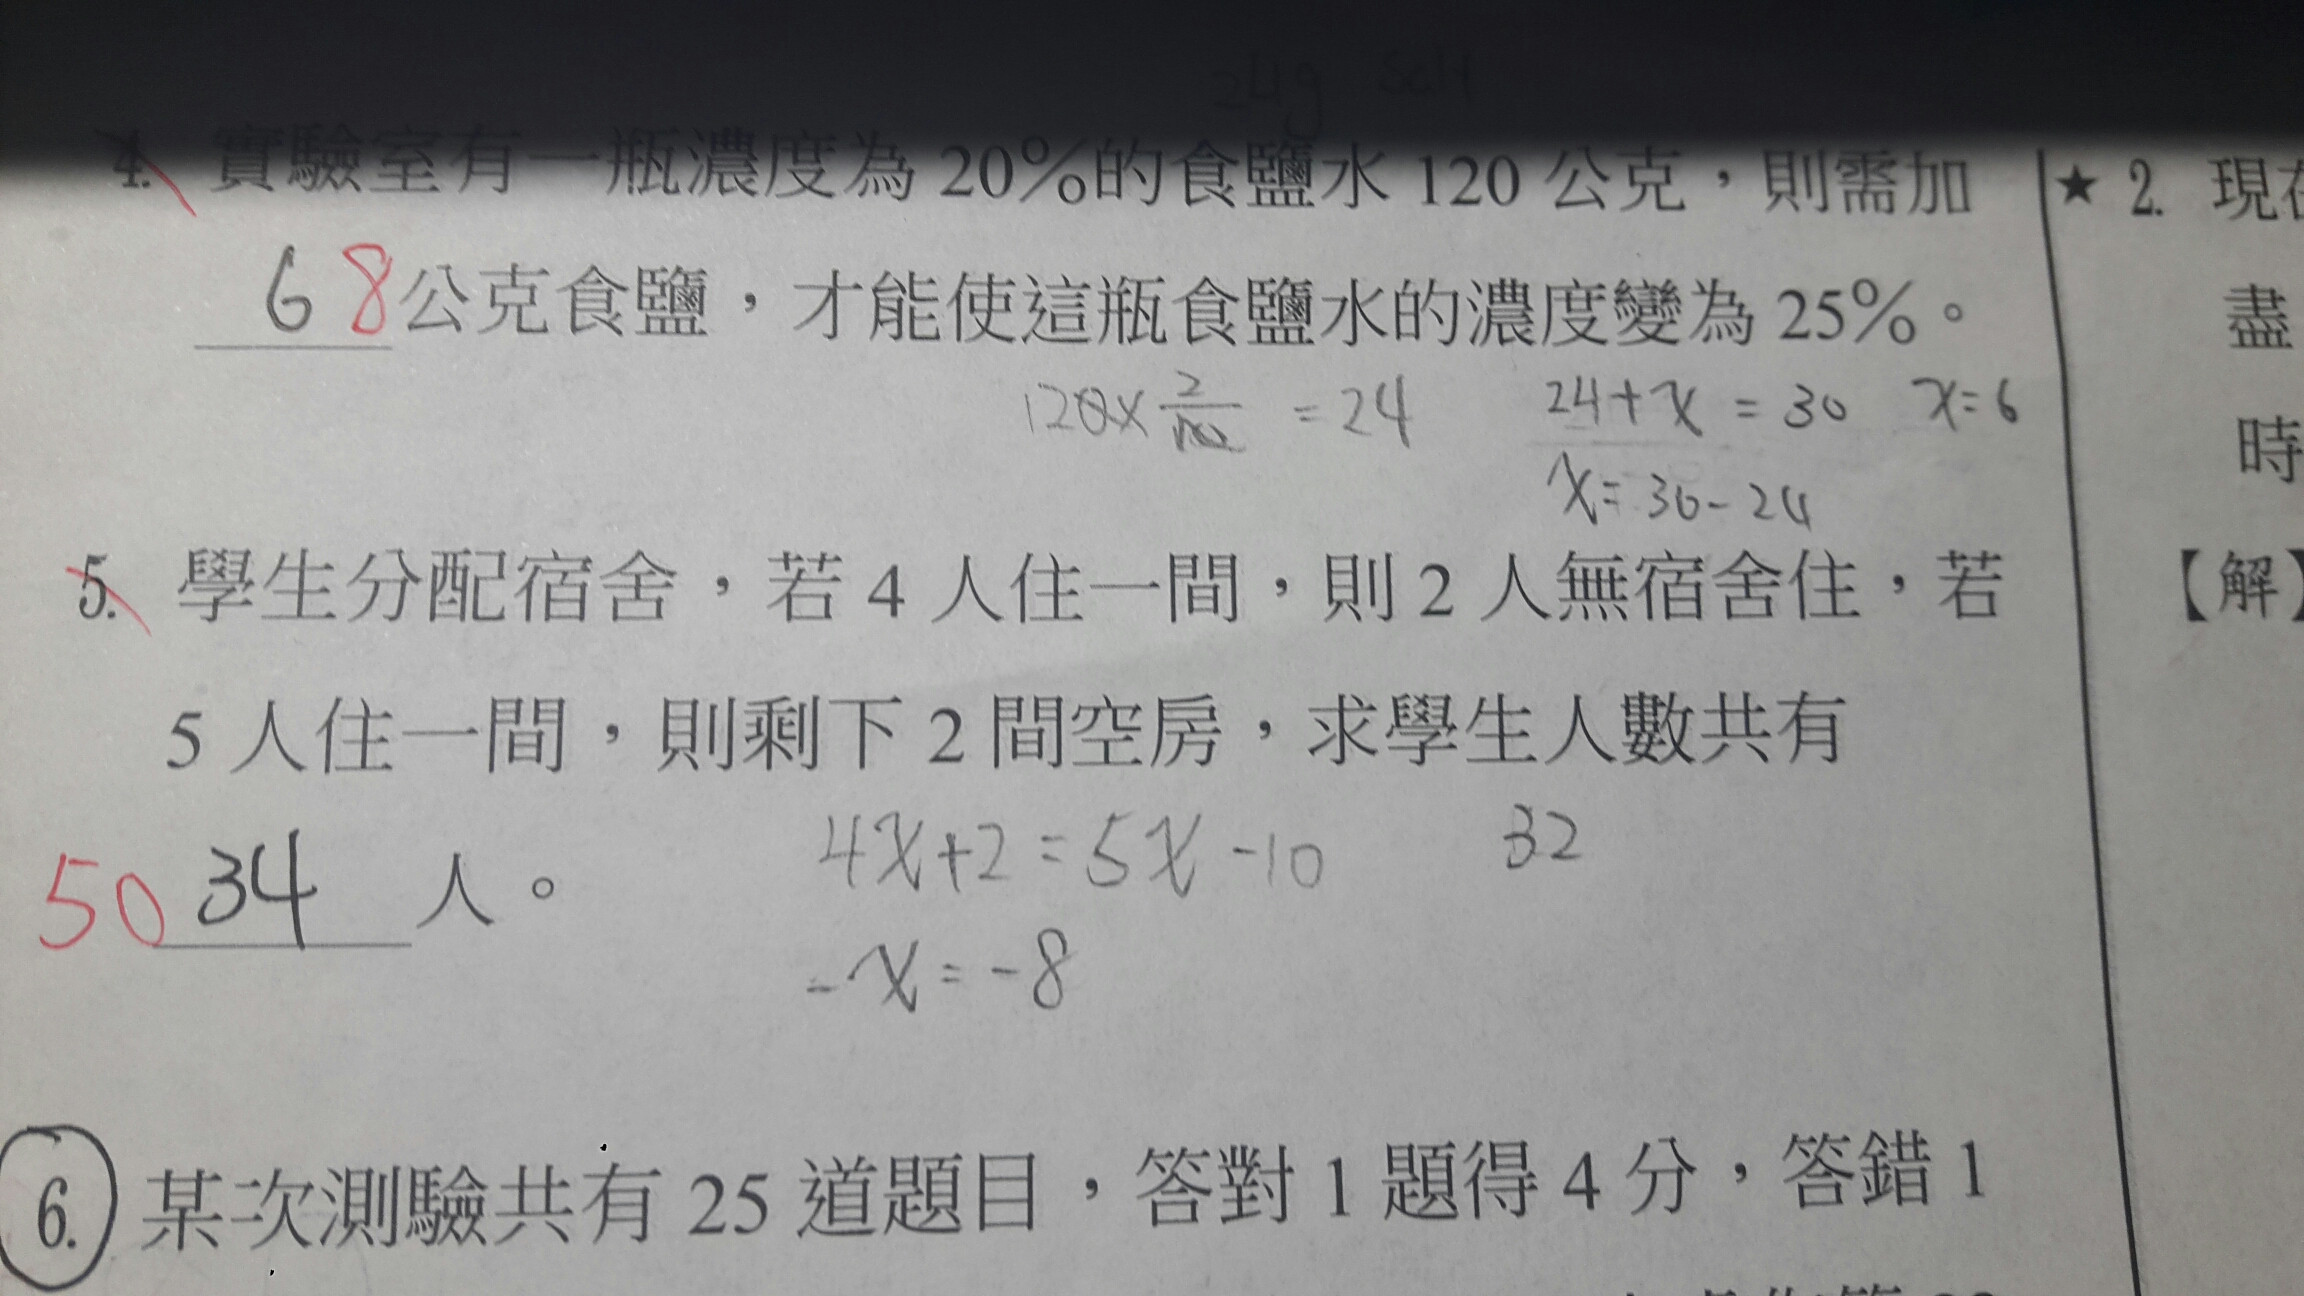 24g salt
4. 實驗室有一瓶濃度為 20%的食鹽水 120 公克，則需加
6 8 公克食鹽，才能使這瓶食鹽水的濃度變為 25%。
= 24 24+x = 30 x=6
x=30-24
5. 學生分配宿舍，若 4 人住一間，則 2 人無宿舍住，若
5 人住一間，則剩下 2 間空房，求學生人數共有
50 34 人。 4x+2=5x-10 32
-x=-8
6. 某次測驗共有 25 道題目，答對 1 題得 4 分，答錯 1
★ 2. 現
盡
時
【解】